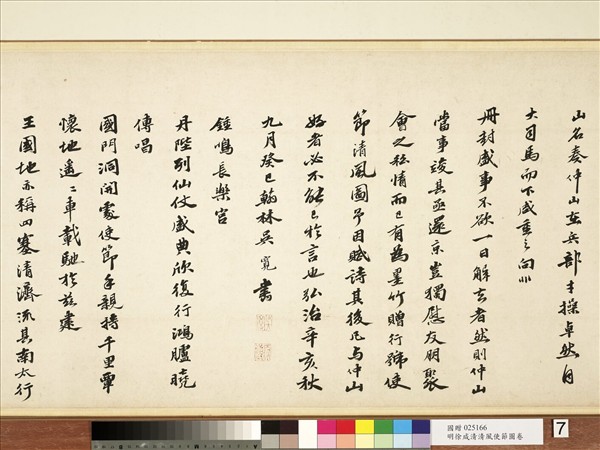 山名秦仲山在兵部才操卓然自
大司馬而下咸重之向非
冊封盛事不欲一日解去者然則仲山
當事竣其亟還京豈獨慰友朋聚
會之私情而已有為墨竹贈行號使
節清風圖予因賦詩其後凡與仲山
好者必不能已於言也弘治辛亥秋
九月癸巳翰林吳寬書
鍾鳴長樂宮
丹陛列仙仗盛典欣復行鴻臚曉
傳唱
國門洞開處使節手親持千里單
懷地遙遙車載馳於茲建
王國地亦稱四塞清濟流其南太行
國贈 025166
明徐咸清清風使節圖卷
7